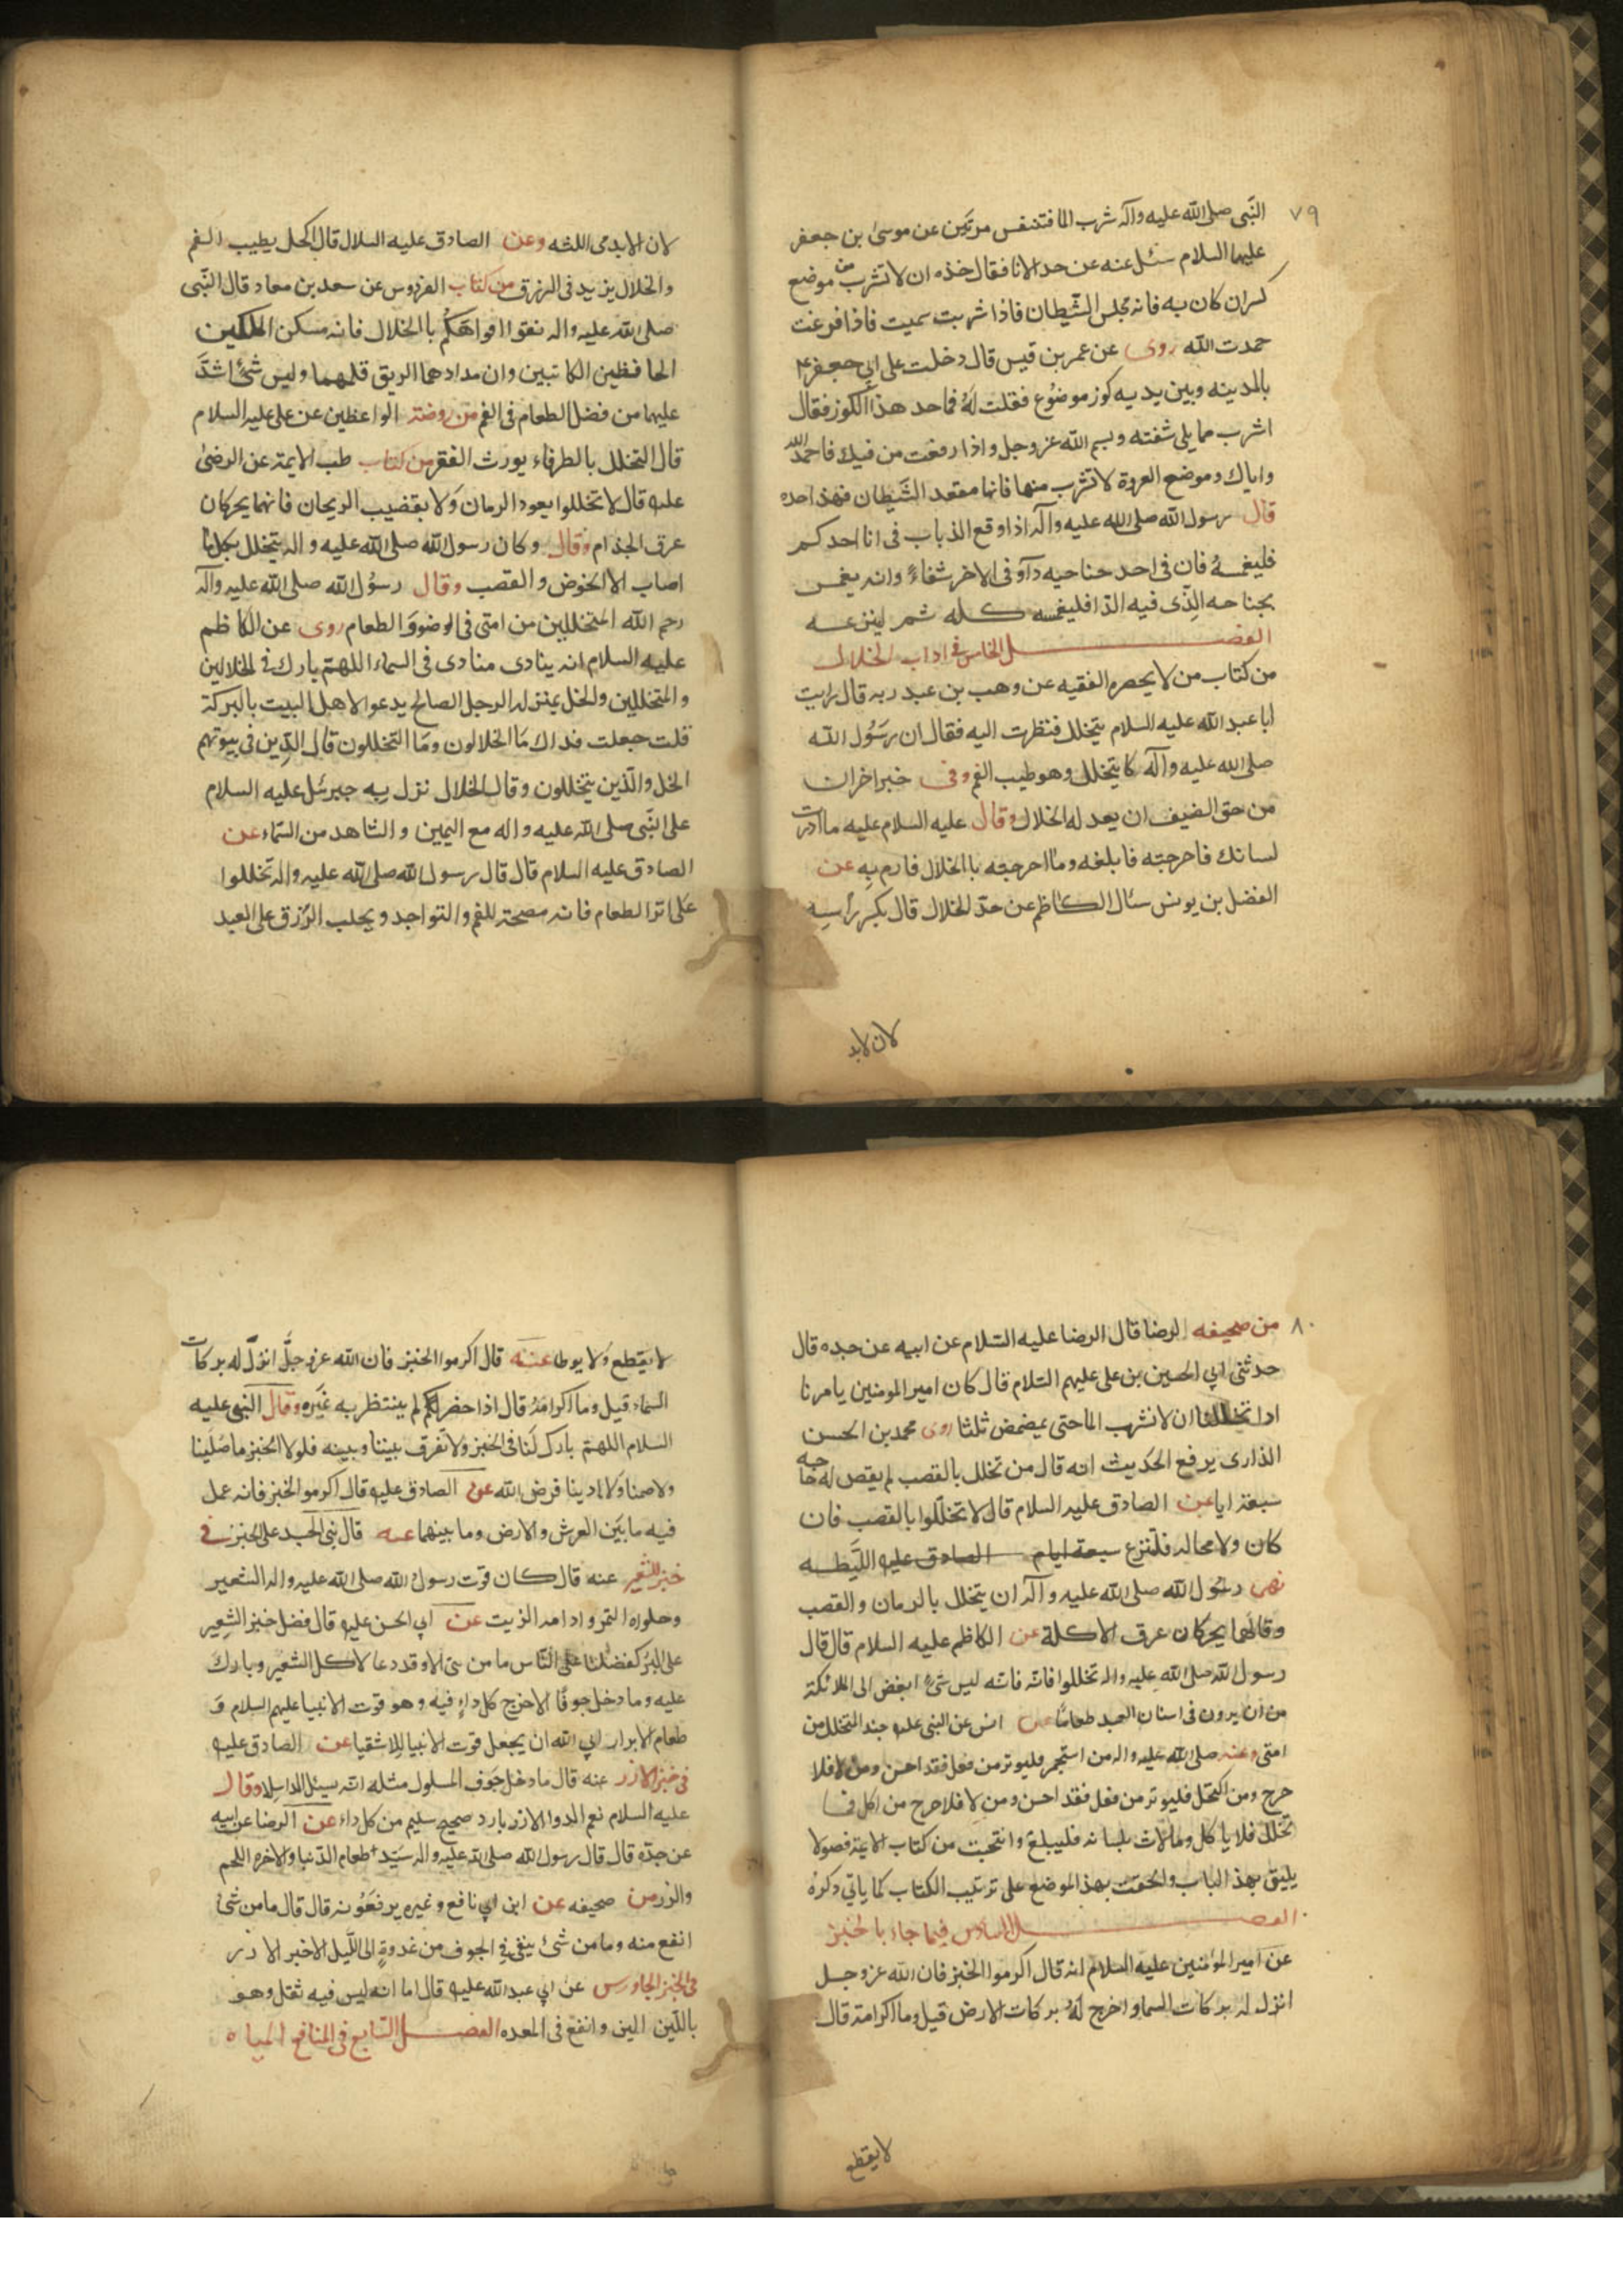 ٧٩
النبى صلى الله عليه وآله شرب الما فتنفس مرتين عن موسى بن جعفر
عليهما السلام سئل عنه عن حد الانا فقال خذه ان لا تشرب من موضع
كسران كان به فانه مجلس الشيطان فاذا شربت سميت فاذا فرغت
حمدت الله روى عن عمر بن قيس قال دخلت على ابي جعفر ع
بالمدينه وبين يديه كوز موضوع فقلت له فما حد هذا الكوز فقال
اشرب مما يلى شفته وبسم الله عز وجل واذا رفعت من فيك فاحمد الله
واياك وموضع العروة لا تشرب منها فانها مقعد الشيطان فهذا حده
قال رسول الله صلى الله عليه وآله اذا وقع الذباب فى انا احدكم
فليغمسهُ فان فى احد جناحيه دآء وفى الاخر شفاءً وانه يغمس
بجناحه الذى فيه الدا فليغمسه كله ثم لينزعه
الفصل الخامس فى اداب الخلال
من كتاب من لا يحضره الفقيه عن وهب بن عبد ربه قال رايت
ابا عبد الله عليه السلام يتخلل فنظرت اليه فقال ان رسول الله
صلى الله عليه وآله كا يتخلل وهو طيب الفم وفى خبر اخر ان
من حق الضيف ان يعد له الخلال وقال عليه السلام عليه ما ادرت
لسانك فاخرجته فابلغه وما اخرجته با الخلال فارم به عن
الفضل بن يونس سئال الكاظم عن حد الخلال قال بكسر راسه
لان لابد
لان لا يدمى اللثه وعن الصادق عليه السلال قال الكحل يطيب الفم
والخلال يزيد فى الرزق من كتاب الفردوس عن سعد بن معاد قال النبى
صلى الله عليه واله نقوا افواهكم با الخلال فانه مسكن الملكين
الحافظين الكاتبين وان مدادهما الريق قلمهما وليس شئ اشد
عليهما من فضل الطعام فى الفم من روضة الواعظين عن على عليه السلام
قال التخلل بالطرفاء يورث الفقر من كتاب طب الايمة عن الرضى
عليه قال لا تخللوا بعود الرمان ولا بقضيب الريحان فانهما يحركان
عرق الجذام وقال وكان رسول الله صلى الله عليه واله يتخلل بكل ما
اصاب الا الخوض والقصب وقال رسول الله صلى الله عليه وآله
رحم الله المتخللين من امتى فى الوضو والطعام روى عن الكاظم
عليه السلام انه ينادى منادى فى السماء اللهم بارك فى الخلالين
والمتخللين والخل بمنزله الرجل الصالح يدعوا لاهل البيت بالبركة
قلت جعلت فداك ما الخلالون وما المتخللون قال الذين فى بيوتهم
الخل والذين يتخللون وقال الخلال نزل به جبرئيل عليه السلام
على النبى صلى الله عليه واله مع اليمين والشاهد من السماء عن
الصادق عليه السلام قال قال رسول الله صلى الله عليه واله تخللوا
على اثر الطعام فانه مصحة للفم والنواجد ويجلب الرزق على العبد
٨٠
من صحيفه الرضا قال الرضا عليه السلام عن ابيه عن جده قال
حدثنى ابي الحسين بن على عليهم السلام قال كان امير المومنين يامرنا
ادا تخللنا ان لا نشرب الما حتى يمضمض ثلثا روى محمد بن الحسن
الذارى يرفع الحديث انه قال من تخلل بالقصب لم يقص له حاجه
سبعة ايا عن الصادق عليه السلام قال لا تخللوا بالقصب فان
كان ولا محاله فلتنزع سبعة ايام الصادق عليه الليطه
نهى رسول الله صلى الله عليه وآله ان يتخلل بالرمان والقصب
وقا لهما يحركان عرق الاكلة عن الكاظم عليه السلام قال قال
رسول الله صلى الله عليه واله تخللوا فانه فانه ليس شئ ابغض الى الملائكة
من ان يرون فى اسنان العبد طعامًا عن انس عن النبى عليه حبذا المتخلل من
امتى وعنه صلى الله عليه واله من استجمر فليوتر من فعل فقد احسن ومن لا فلا
حرج ومن اكتحل فليوتر من فعل فقد احسن ومن لا فلا حرج من اكل فما
تخلل فلا ياكل وما لاث بلسانه فليبلغ وانتخبت من كتاب الايمة فصولا
يليق بهذا الباب والحقت بهذا الموضع على ترتيب الكتاب كما ياتي ذكره
الفصل السادس فيما جاء بالخبز
عن امير المؤمنين عليه السلام انه قال اكرموا الخبز فان الله عز وجل
انزل له بركات السما واخرج له بركات الارض قيل وما اكرامة قال
لا يقطع
لا يقطع ولا يوطا عنه قال اكرموا الخبز فان الله عز وجل انزل له بركات
السماء قيل وما اكرامه قال اذا حضر لم ينتظر به غيره وقال النبى عليه
السلام اللهم بارك لنا فى الخبز ولا تفرق بيننا وبينه فلولا الخبز ما صلينا
ولا صمنا ولا ادينا فرض الله عن الصادق عليه قال اكرموا الخبز فانه عمل
فيه ما بين العرش والارض وما بينهما عنه قال نبى الجسد على الخبز فى
خبز الشعير عنه قال كان قوت رسول الله صلى الله عليه واله الشعير
وحلواه التمر وادامه الزيت عن ابي الحسن عليه قال فضل خبز الشعير
على البر كفضلنا على الناس ما من نبى الا وقد دعا لاكل الشعير وبارك
عليه وما دخل جوفا الا خرج كل داءٍ فيه وهو قوت الانبيا عليهم السلام و
طعام الابرار ابي الله ان يجعل قوت الانبيا للاشقيا عن الصادق عليه
فى خبز الارز عنه قال ما دخل جوف المسلول مثله انه يسيل الدا سلا وقال
عليه السلام نعم الدوا الارز بارد صحيح سليم من كل داء عن الرضا عن ابيه
عن جده قال قال رسول الله صلى الله عليه واله سيد طعام الدنيا والاخره اللحم
والرز من صحيفه عن ابن ابي نافع وغيره يرفعونه قال قال ما من شئ
انفع منه وما من شئ يبقى فى الجوف من غدوة الى الليل الا خبز الارز
فى الخبز الجاورس عن ابي عبد الله عليه قال اما انه ليس فيه ثقل وهو
باللبن الين وانفع فى المعده الفصل السابع فى المنافع المياه